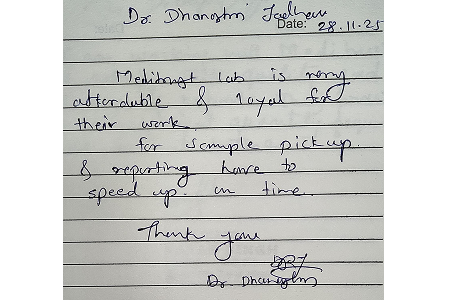 Dr. Dhanashri Jadhav
Date: 28.11.25
Meditrust lab is very
affordable & loyal for
their work
for sample pick up.
& reporting have to
speed up. on time.
Thank you
Dr. Dhanashri